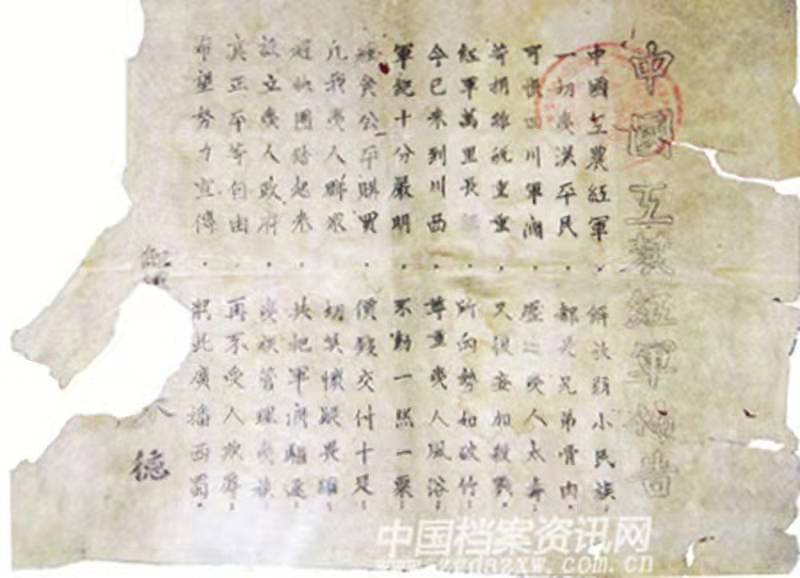 中國工農紅軍佈告
中國工農紅軍．解放弱小民族．
一切夷漢平民．都是兄弟骨肉．
可恨四川軍閥．壓迫夷人太毒．
苛捐雜稅重重．又復妄加殺戮．
紅軍萬里長．所向勢如破竹．
今已來到川西．尊重夷人風俗．
軍紀十分嚴明．不動一絲一粟．
糧食公平購買．價錢交付十足．
凡我夷人群眾．切莫懷疑畏縮．
趕快團結起來．共把軍閥驅逐．
設立夷人政府．夷族管理夷族．
真正平等自由．再不受人欺辱．
希望努力宣傳．將此廣播西蜀．
德
中国档案资讯网
www.zgdazxw.com.cn